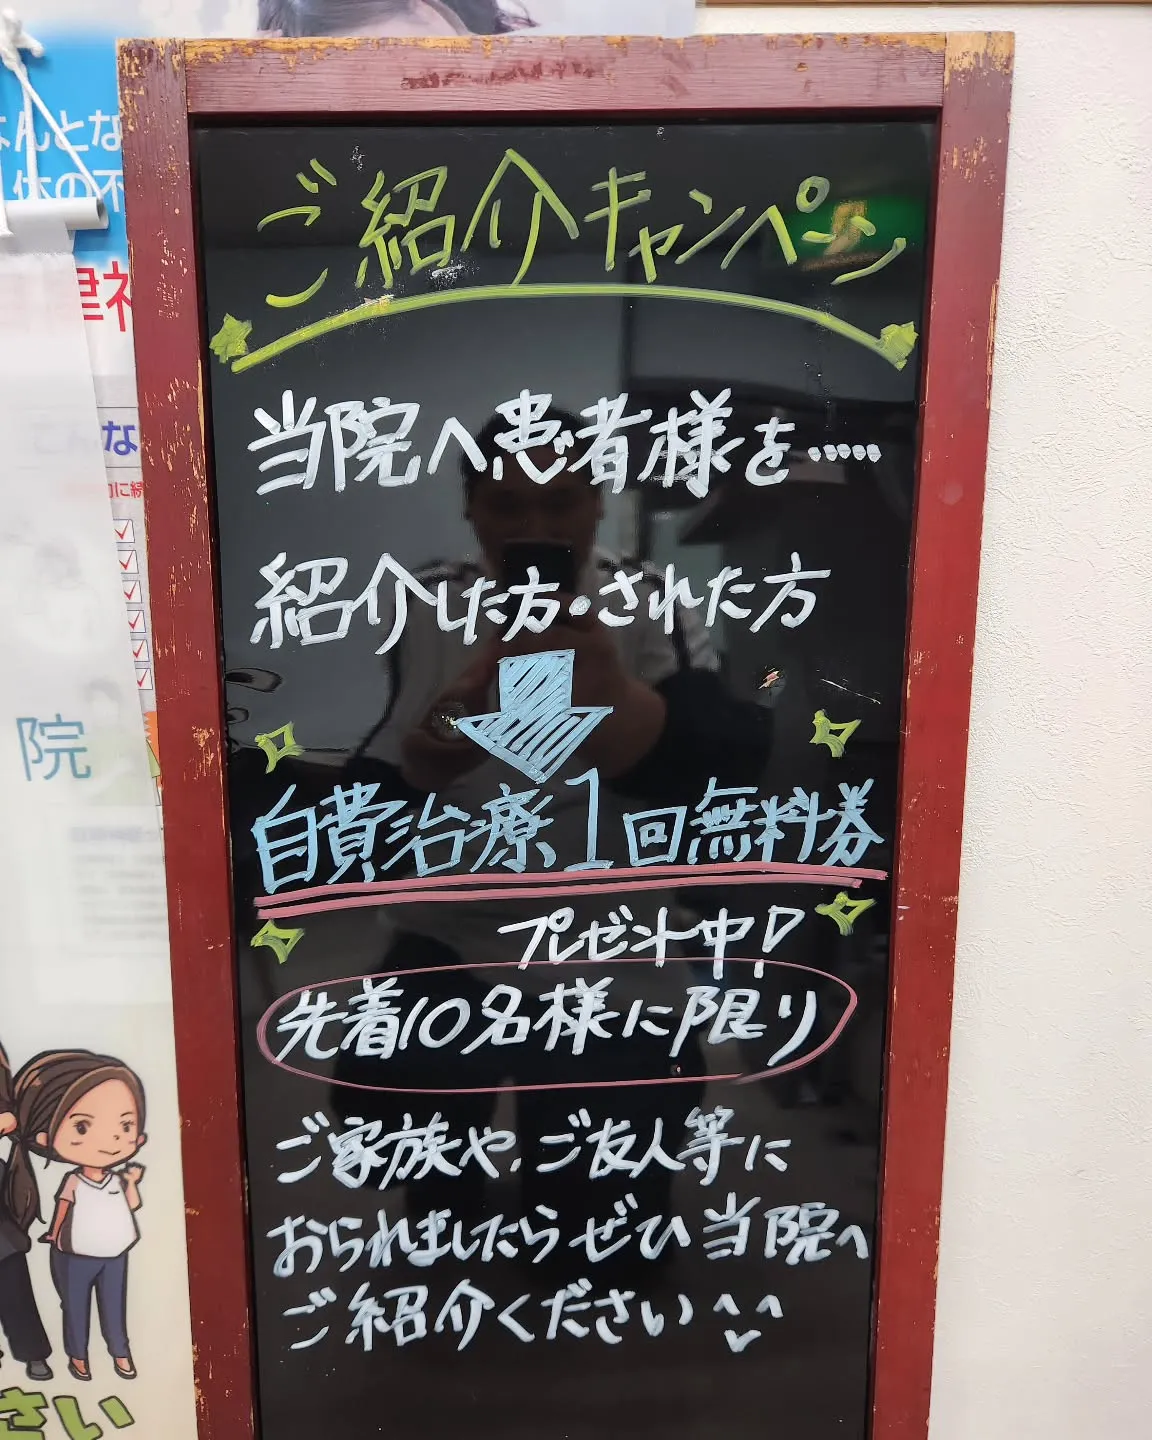 ご紹介キャンペーン
当院へ患者様を……
紹介した方・された方
自費治療1回無料券
プレゼント中!
先着10名様に限り
ご家族や、ご友人等に
おられましたらぜひ当院へ
ご紹介ください^^
なんとな
体の不
律神
こんな
に続
院
さい